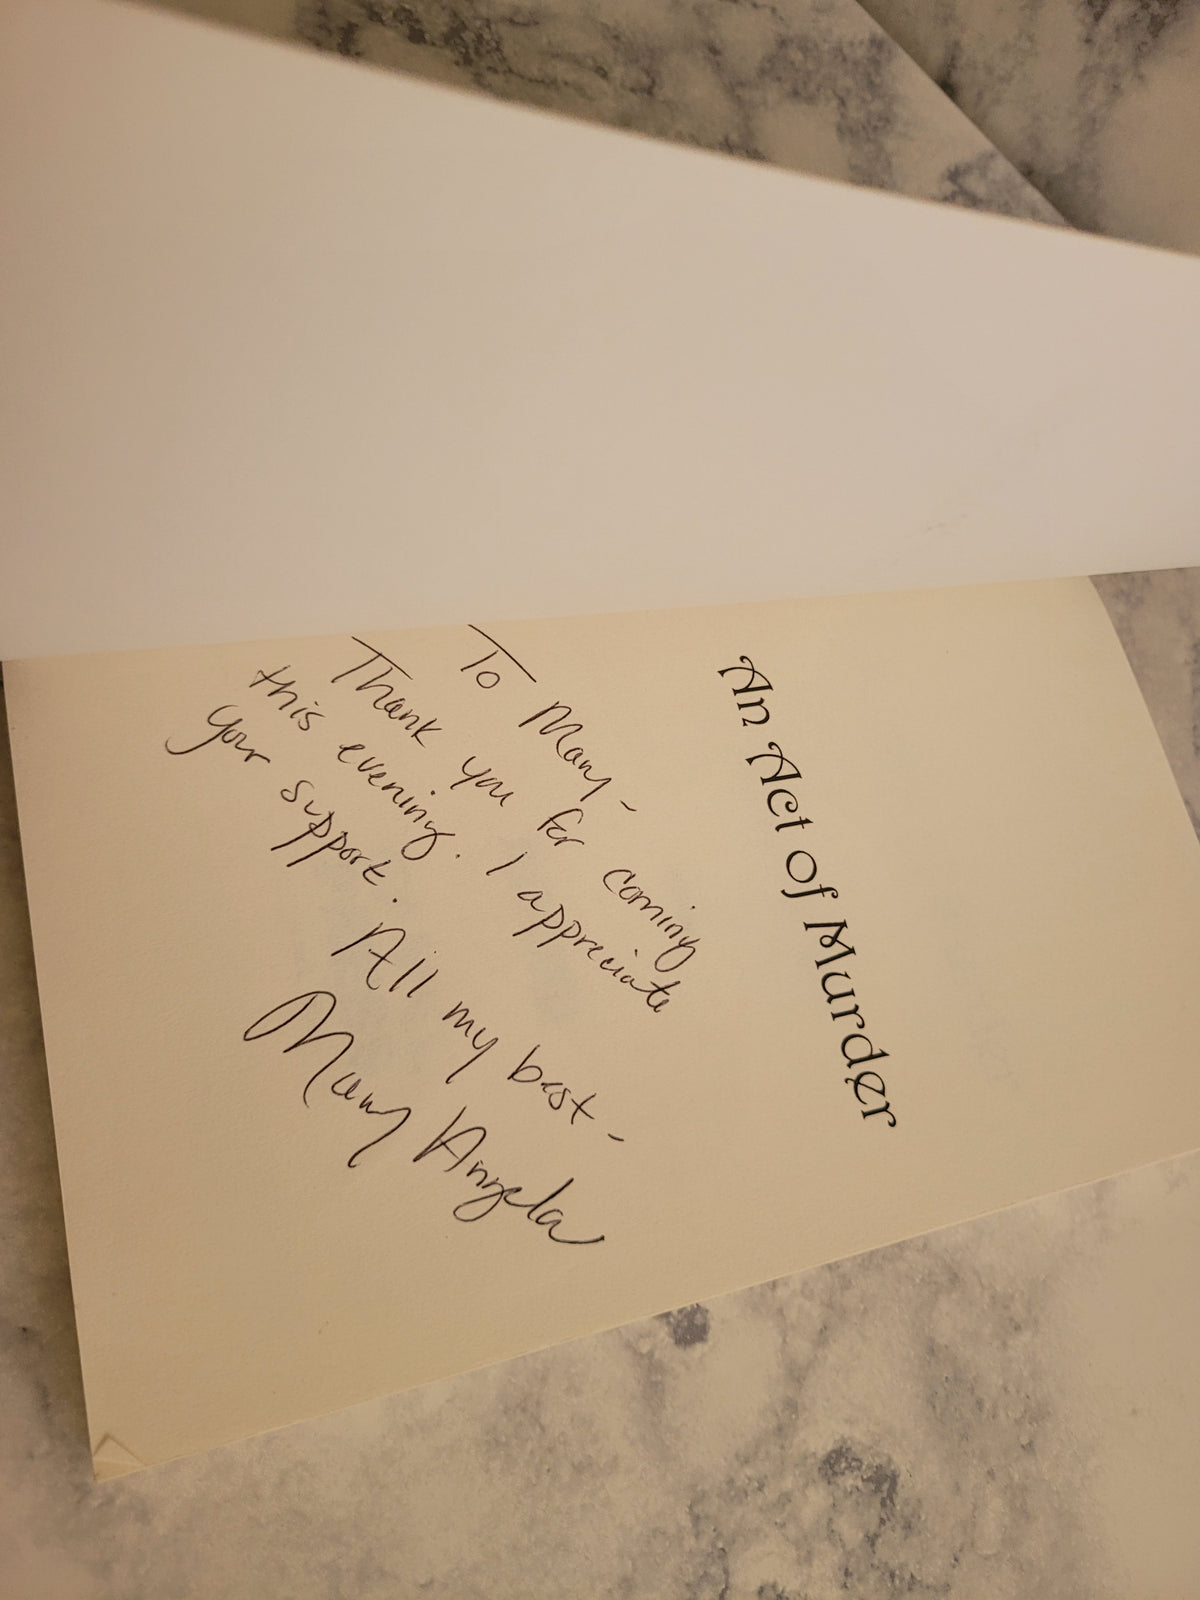 An Act of Murder
To Mary-
Thank you for coming
this evening. I appreciate
your support.
All my best-
Mary Angela